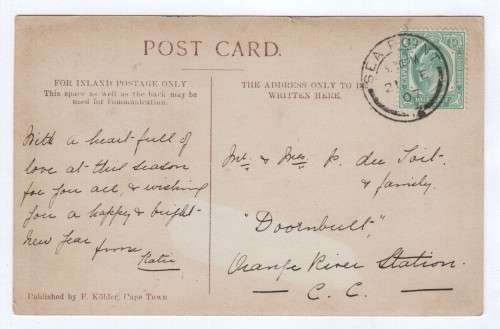 POST CARD.
FOR INLAND POSTAGE ONLY
This space as well as the back may be
used for Communication.
THE ADDRESS ONLY TO BE
WRITTEN HERE.
SEA POINT
With a heart full of
love at this season
for you all, & wishing
you a happy & bright
New Year
from
Katie
Mr. & Mrs. P. du Toit
& family.
"Doornbult,"
Orange River Station.
C. C.
Published by F. Köhler, Cape Town